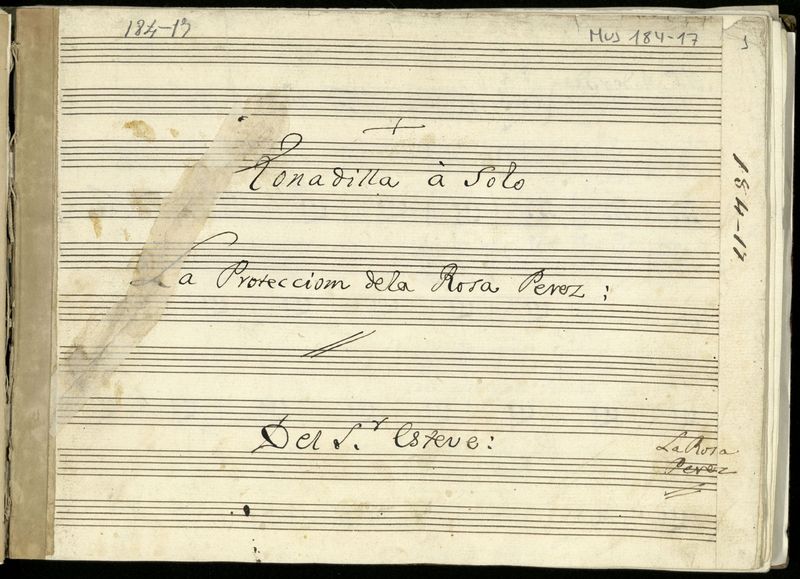 184-17
Mus 184-17
1
184-17
Tonadilla à Solo
La Protecciom dela Rosa Perez:
Del S.r Esteve:
La Rosa
Perez